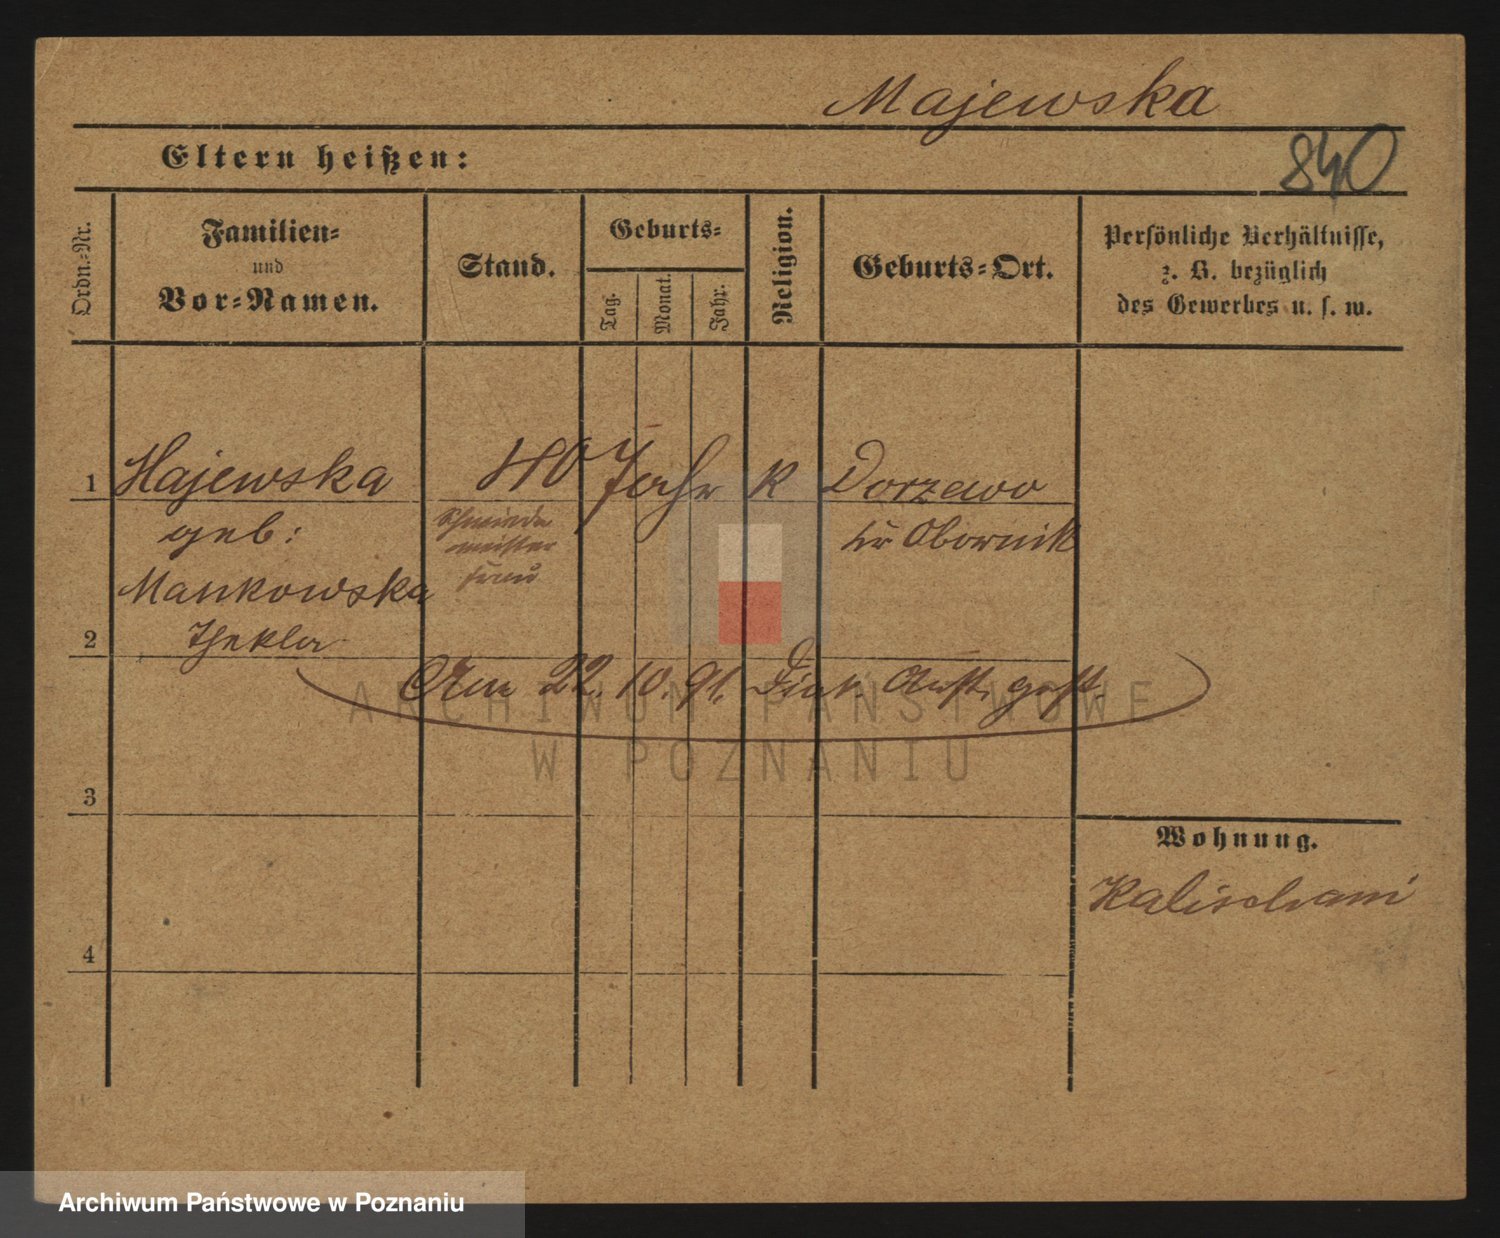 Majewska
Eltern heißen:
840
Ordn.-Nr.
Familien-
und
Vor-Namen.
Stand.
Geburts-
Tag.
Monat.
Jahr.
Religion.
Geburts-Ort.
Persönliche Verhältnisse,
z. B. bezüglich
des Gewerbes u. s. w.
1 Majewska 40 Jahr K Dorzewo
geb: Schmiede Kr Obornik
meister
frau
Mankowska
2 Thekla
Am 22. 10. 91. Diak. Anst. gest.
ARCHIWUM PAŃSTWOWE
W POZNANIU
3
Wohnung.
4
Archiwum Państwowe w Poznaniu